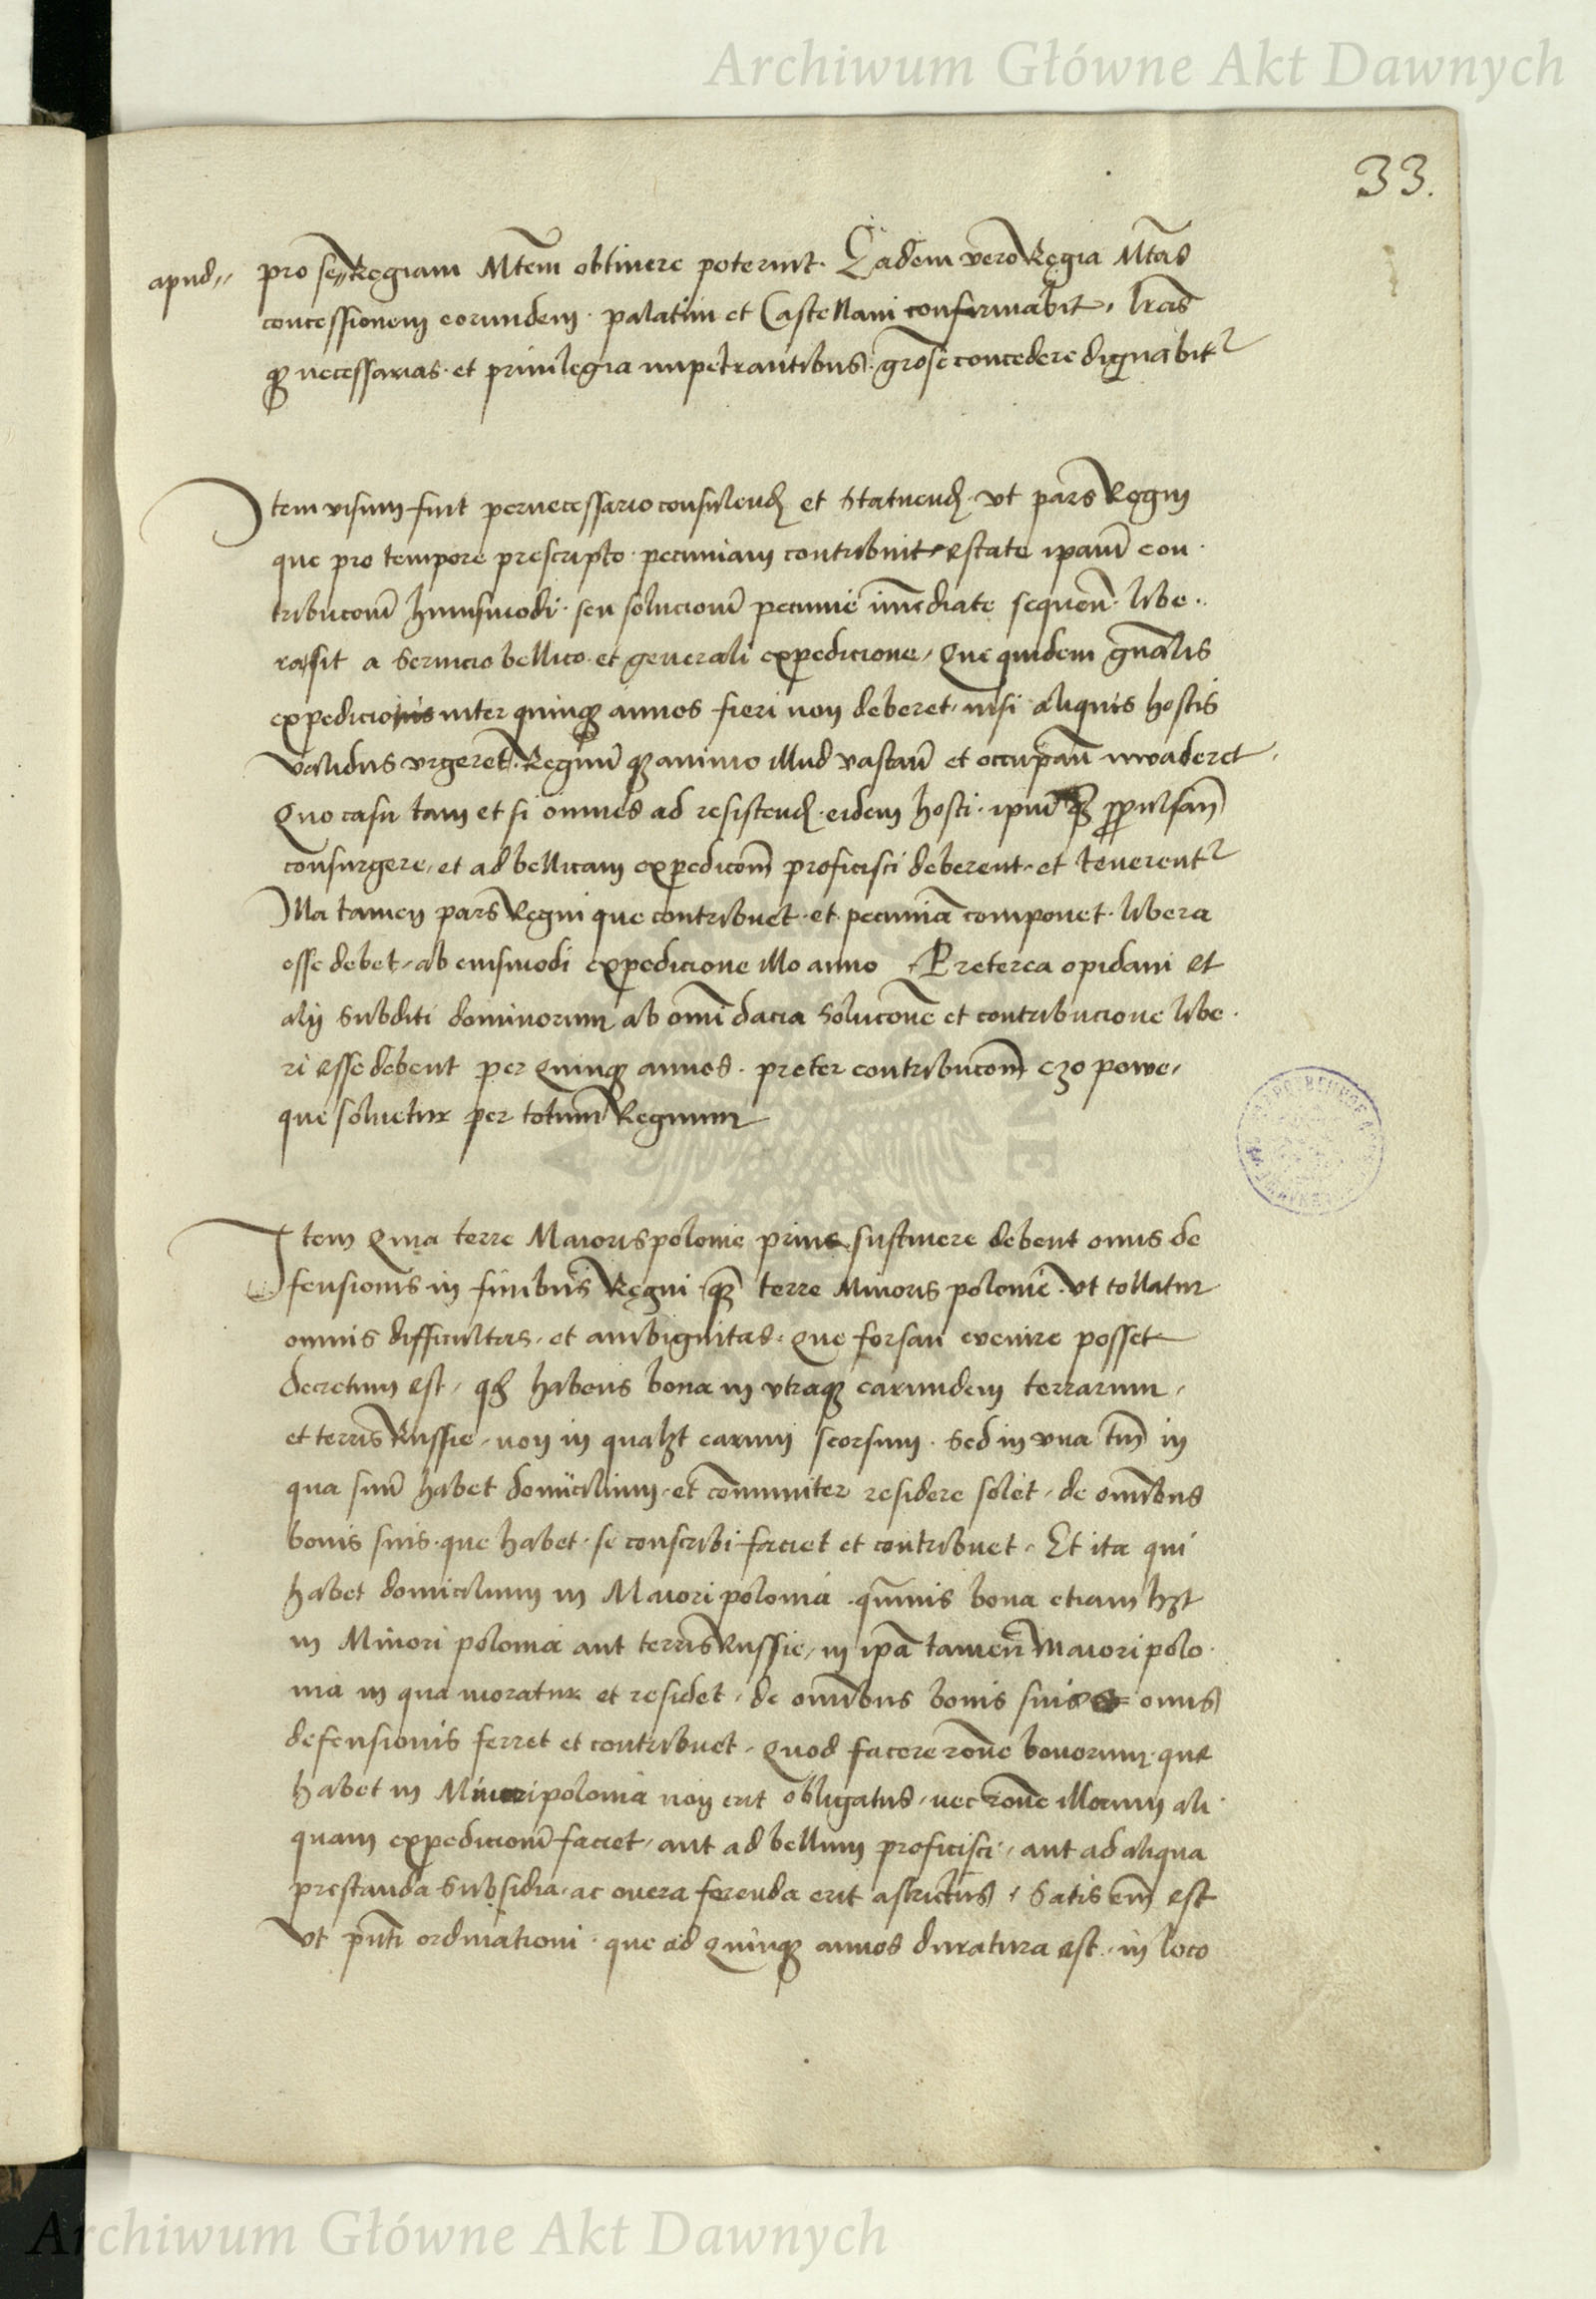 Archiwum Główne Akt Dawnych
33.
apud,, pro se,, Regiam Mtem obtinere poterint. Eadem vero Regia Mtas
concessionem eorundem. palatini et Castellani confirmabit, lras
q₃ necessarias. et privilegia impetrantibus. grose concedere dignabitr
Item visum fuit pernecessario consulend et statuend. vt pars Regni
que pro tempore prescripto. pecuniam contribuit estate ipam con.
tribucom huiusmodi. seu solucionem pecunie imediate sequen. libe..
ra sit a servicio bellico. et generali expedicione, Que quidem gnalis
expedicio inter quinq₃ annos fieri non deberet, nisi aliquis hostis
validus vrgeret. Regnum q₃ animo illud vastam et occupam invaderet.
Quo casu tam et si omnes ad resistend. eidem hosti. ipm q₃ propulsam
consurgere, et ad bellicam expedicom proficisci deberent. et tenerentr
Illa tamen pars Regni que contribuet. et pecunia componet. libera
esse debet, ab eiusmodi expedicione illo anno. Preterea opidani et
alij subditi dominorum ab omi dacia solucone et contribucione libe.
ri esse debent per quinq₃ annos. preter contribucom czopowe,
que soluetur per totum Regnum
Item Quia terre Maioris polonie prius sustinere debent onus de
fensionis in finibus Regni. q₃ terre Minoris polonie. vt tollatur
omnis difficultas, et ambiguitas. que forsan evenire posset
decretum est, qd habens bona in vtraq₃ earundem terrarum,
et terris Russie, non in qualzt earum seorsum. Sed in vna tm in
qua suum habet domicilium, et comuniter residere solet, de omibus
bonis suis. que habet. se conscribi faciet et contribuet. Et ita qui
habet domicilium in Maiori polonia. quamuis bona etiam hzt
in Minori polonia aut terris Russie, in ipa tamen Maiori polo.
nia in qua moratur et residet, de omibus bonis suis onus
defensionis ferret et contribuet, Quod facere rone bonorum. que
habet in Minori polonia non erit obligatus, nec rone illorum ali.
quam expedicionem faciet, aut ad bellum proficisci, aut ad aliqua
prestanda subsidia, ac onera ferenda erit astrictus. Satis em est
vt pnti ordinationi. que ad quinq₃ annos duratura est. in loco
Archiwum Główne Akt Dawnych